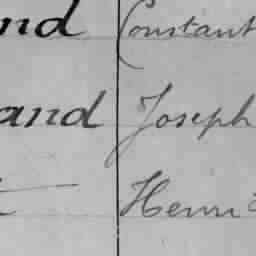 nd Constant
and Joseph
Henri